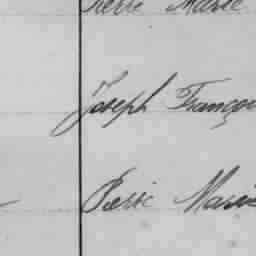 Pierre Marie
Joseph Françoi
Pierre Marie